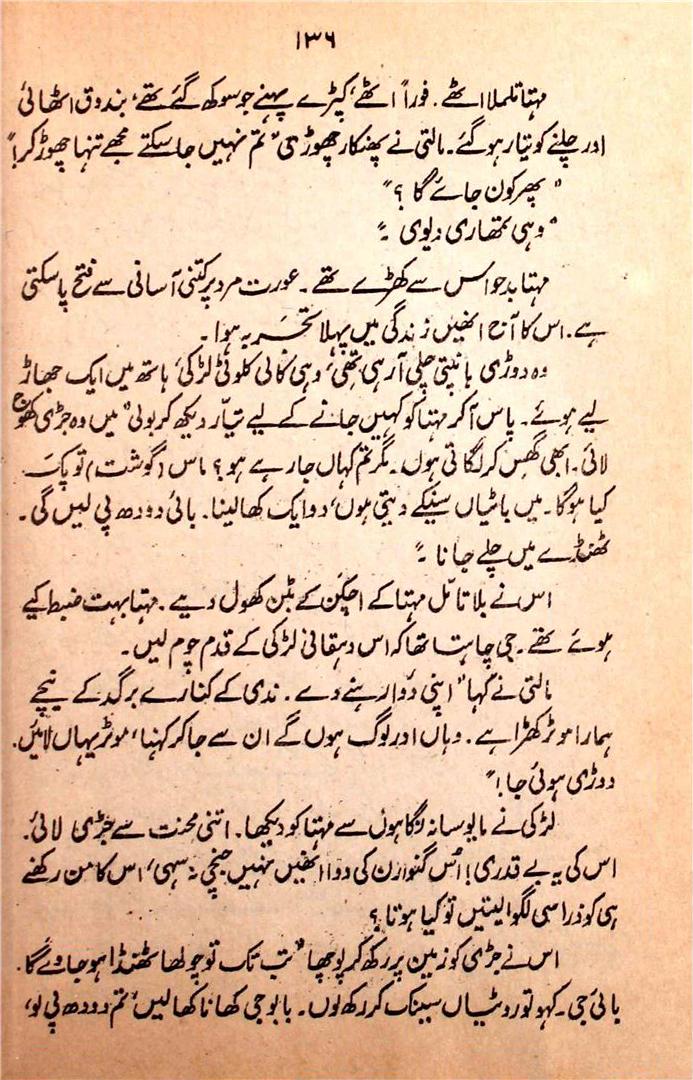 ۱۳۶
مہتا تلملا اٹھے۔ فوراً اٹھے، کپڑے پہنے جو سوکھ گئے تھے، بندوق اٹھائی
اور چلنے کو تیار ہو گئے۔ مالتی نے پھنکار چھوڑی "تم نہیں جا سکتے مجھے تنہا چھوڑ کر!"
"پھر کون جائے گا؟"
"وہی تمھاری دیوی۔"
مہتا بدحواس سے کھڑے تھے۔ عورت مرد پر کتنی آسانی سے فتح پا سکتی
ہے۔ اس کا آج انھیں زندگی میں پہلا تجربہ ہوا۔
وہ دوڑی ہانپتی چلی آ رہی تھی، وہی کالی کلوٹی لڑکی، ہاتھ میں ایک جھاڑ
لیے ہوئے۔ پاس آ کر مہتا کو کہیں جانے کے لیے تیار دیکھ کر بولی "میں وہ جڑی کھوج
لائی۔ ابھی گھس کر لگاتی ہوں۔ مگر تم کہاں جا رہے ہو؟ ماس (گوشت) تو پک
گیا ہوگا۔ میں باٹیاں سینکے دیتی ہوں، دو ایک کھا لینا۔ بائی دودھ پی لیں گی۔
ٹھنڈے میں چلے جانا۔"
اس نے بلا تامّل مہتا کے اچکن کے بٹن کھول دیے۔ مہتا بہت ضبط کیے
ہوئے تھے۔ جی چاہتا تھا کہ اس دہقانی لڑکی کے قدم چوم لیں۔
مالتی نے کہا "اپنی دوا رہنے دے۔ ندی کے کنارے برگد کے نیچے
ہمارا موٹر کھڑا ہے۔ وہاں اور لوگ ہوں گے ان سے جا کر کہنا، موٹر یہاں لائیں۔
دوڑی ہوئی جا!"
لڑکی نے مایوسانہ نگاہوں سے مہتا کو دیکھا۔ اتنی محنت سے جڑی لائی۔
اس کی یہ بے قدری! اس گنوارن کی دوا انھیں نہیں جنچی نہ سہی، اس کا من رکھنے
ہی کو ذرا سی لگوا لیتیں تو کیا ہوتا؟
اس نے جڑی کو زمین پر رکھ کر پوچھا "تب تک تو چولھا ٹھنڈا ہو جاوے گا۔
بائی جی۔ کہو تو روٹیاں سینک کر رکھ لوں۔ بابو جی کھانا کھا لیں، تم دودھ پی لو،